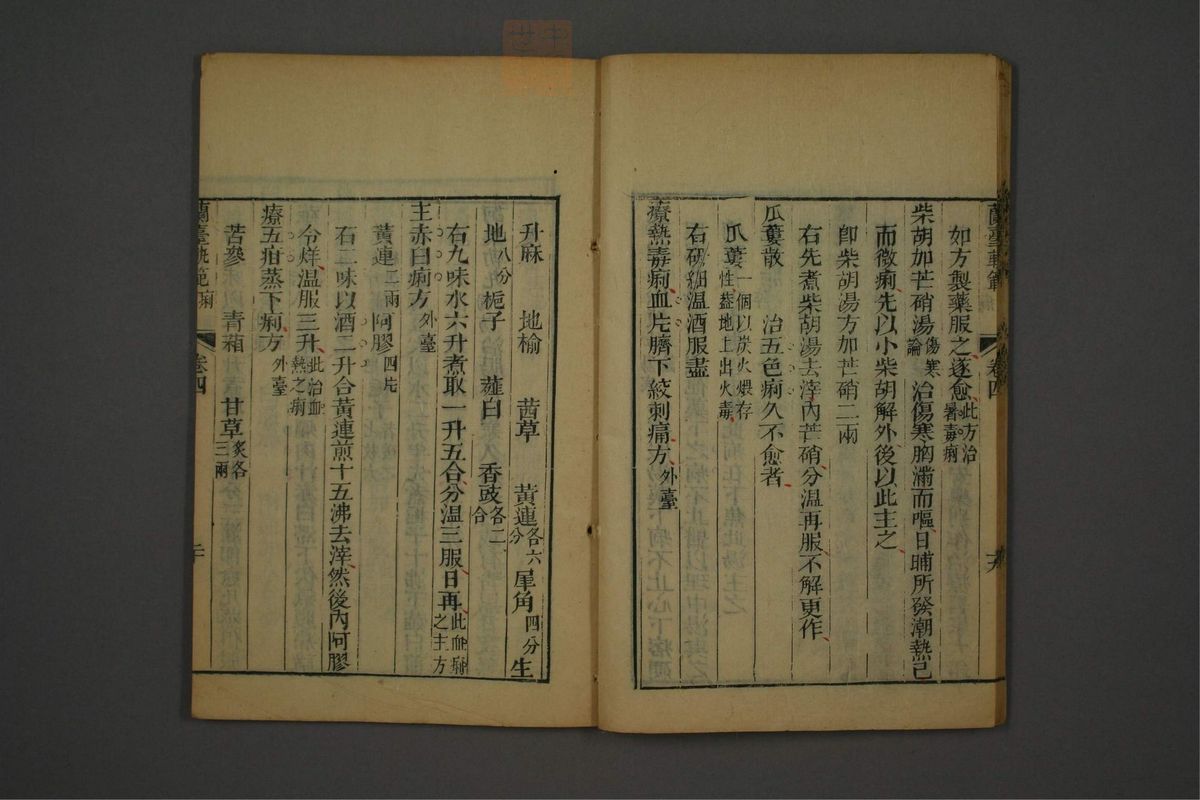 蘭臺軌範
卷四
如方製藥服之遂愈此方治暑毒痢
柴胡加芒硝湯傷寒論治傷寒胸滿而嘔日晡所發潮熱已
而微痢先以小柴胡解外後以此主之
卽柴胡湯方加芒硝二兩
右先煮柴胡湯去滓內芒硝分溫再服不解更作
瓜蔞散 治五色痢久不愈者
瓜蔞一個以炭火煨存性蓋地上出火毒
右硏細溫酒服盡
療熱毒痢血片臍下絞刺痛方外臺
升麻 地榆 茜草 黃連各六分 犀角四分 生
地八分 梔子 薤白 香豉各二合
右九味水六升煮取一升五合分溫三服日再此血痢之主方
主赤白痢方外臺
黃連二兩 阿膠四片
右二味以酒二升合黃連煎十五沸去滓然後內阿膠
令烊溫服三升此治血熱之痢
療五疳蒸下痢方外臺
苦參 青葙 甘草炙各三兩
蘭臺軌範 痢
卷四
二十